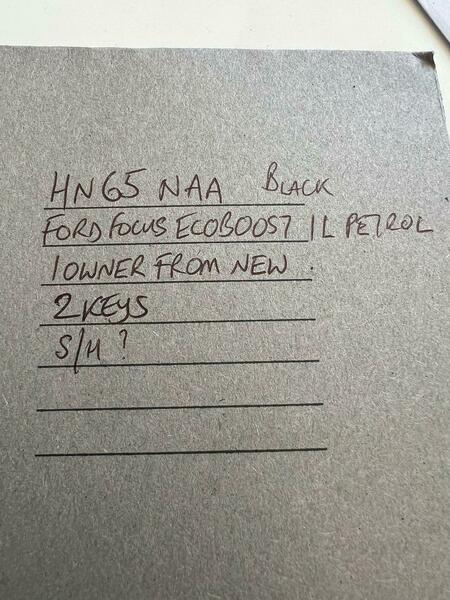 HN65 NAA BLACK
FORD FOCUS ECOBOOST 1L PETROL
1 OWNER FROM NEW.
2 KEYS
S/H ?